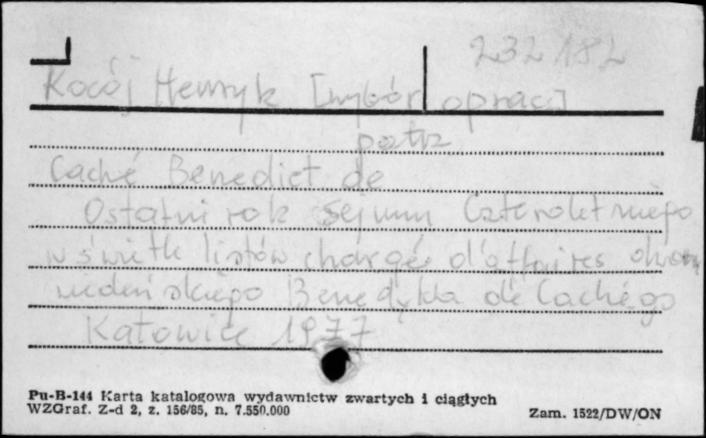 232182
Kocój Henryk [wybór oprac.]
patrz
Caché Benedict de
Ostatni rok Sejmu Czteroletniego
w świetle listów chargé d'affaires dworu
wiedeńskiego Benedykta de Cachégo
Katowice 1977
Pu-B-144 Karta katalogowa wydawnictw zwartych i ciągłych
WZGraf. Z-d 2, z. 156/85, n. 7.550.000
Zam. 1522/DW/ON